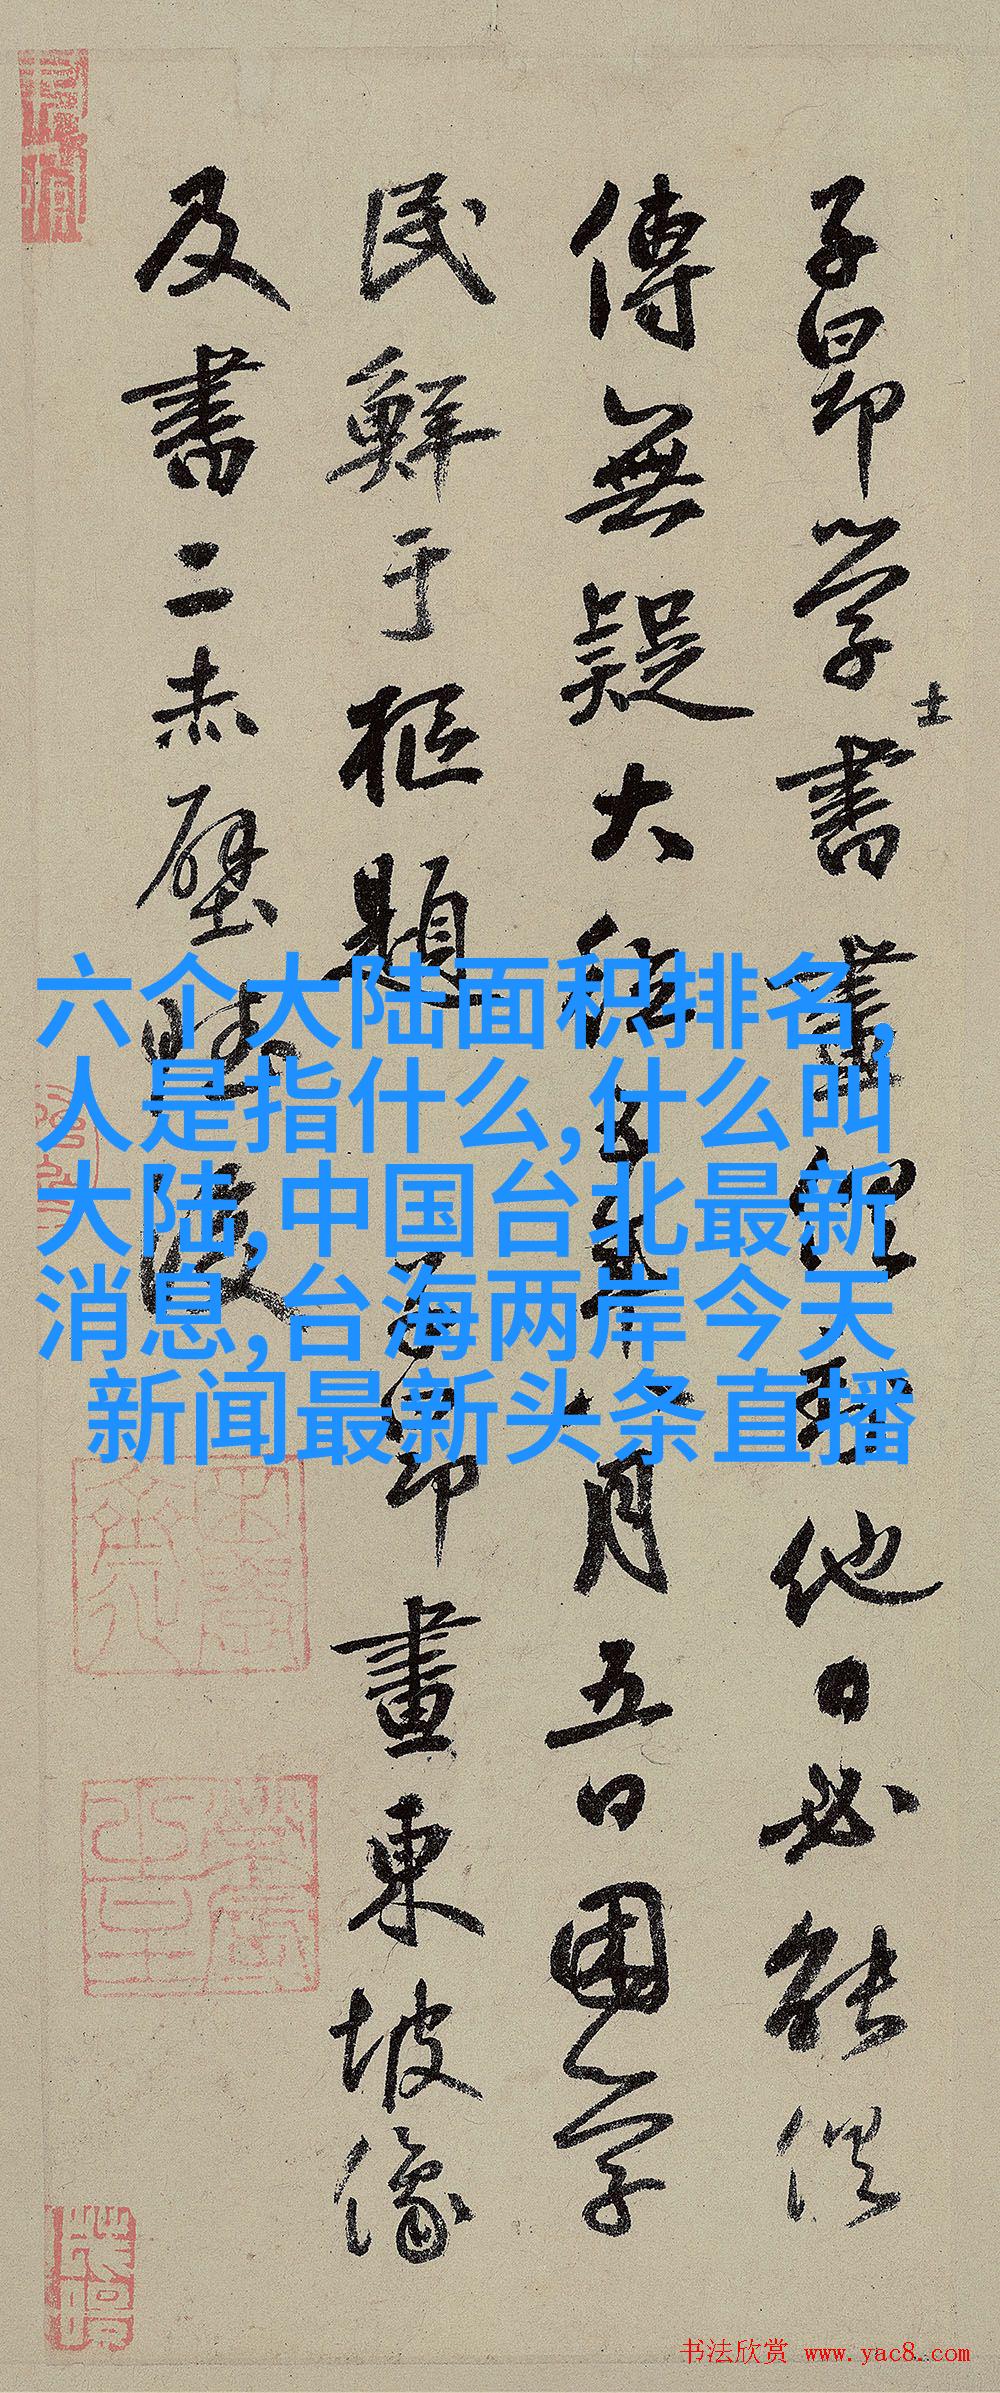 子昂学士書畫俱 他日必能俱
傳無疑大德五年八月五日困学
民鮮于樞題子昂畫東坡像
及書二赤壁賦後
六个大陆面积排名,
人是指什么,什么叫
大陆,中国台北最新
消息,台海两岸今天
新闻最新头条直播
书法欣赏 www.yac8.com